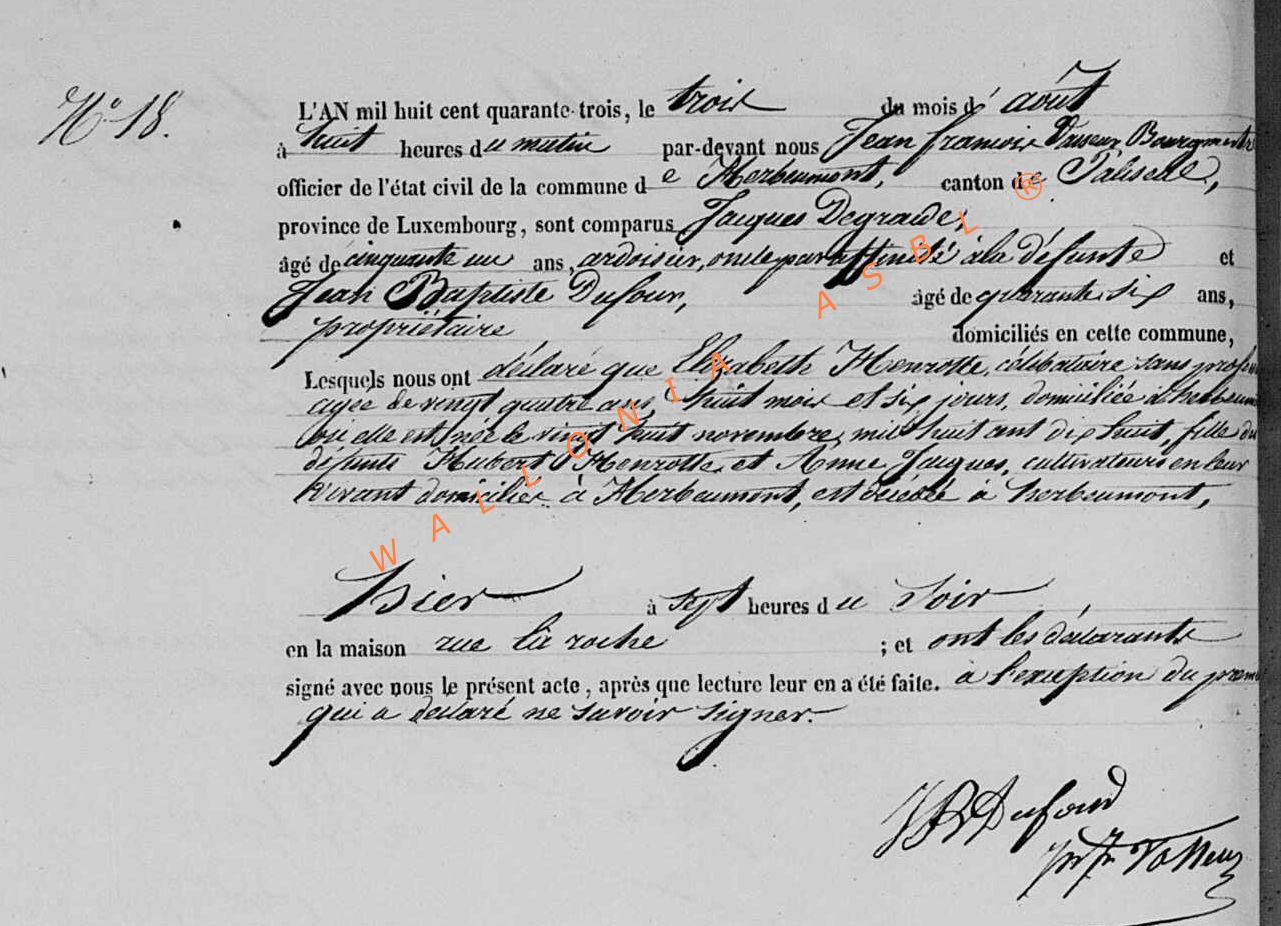 N° 18.
L'AN mil huit cent quarante-trois, le trois du mois d'août
à huit heures du matin par-devant nous Jean françois Vasseur Bourgmestre
officier de l'état civil de la commune de Herbeumont, canton de Paliseul,
province de Luxembourg, sont comparus Jacques Degrande,
âgé de cinquante un ans, ardoisier, oncle par affinité à la défunte et
Jean Baptiste Dufour, âgé de quarante six ans,
propriétaire domiciliés en cette commune,
Lesquels nous ont déclaré que Elizabeth Henrotte, célébataire sans profession
agée de vingt quatre ans, huit mois et six jours, domiciliée à herbeumont
où elle est née le vingt huit novembre mil huit cent dix huit, fille des
défunts Hubert Henrotte et Anne Jacques, cultivateurs en leur
vivant domicilies à Herbeumont, est décédé à herbeumont,
hier à sept heures du Soir
en la maison rue la roche ; et ont les déclarants
signé avec nous le présent acte, après que lecture leur en a été faite. à l'exception du premier
qui a declaré ne savoir signer.
JB Dufour
WALLONIA ASBL ®